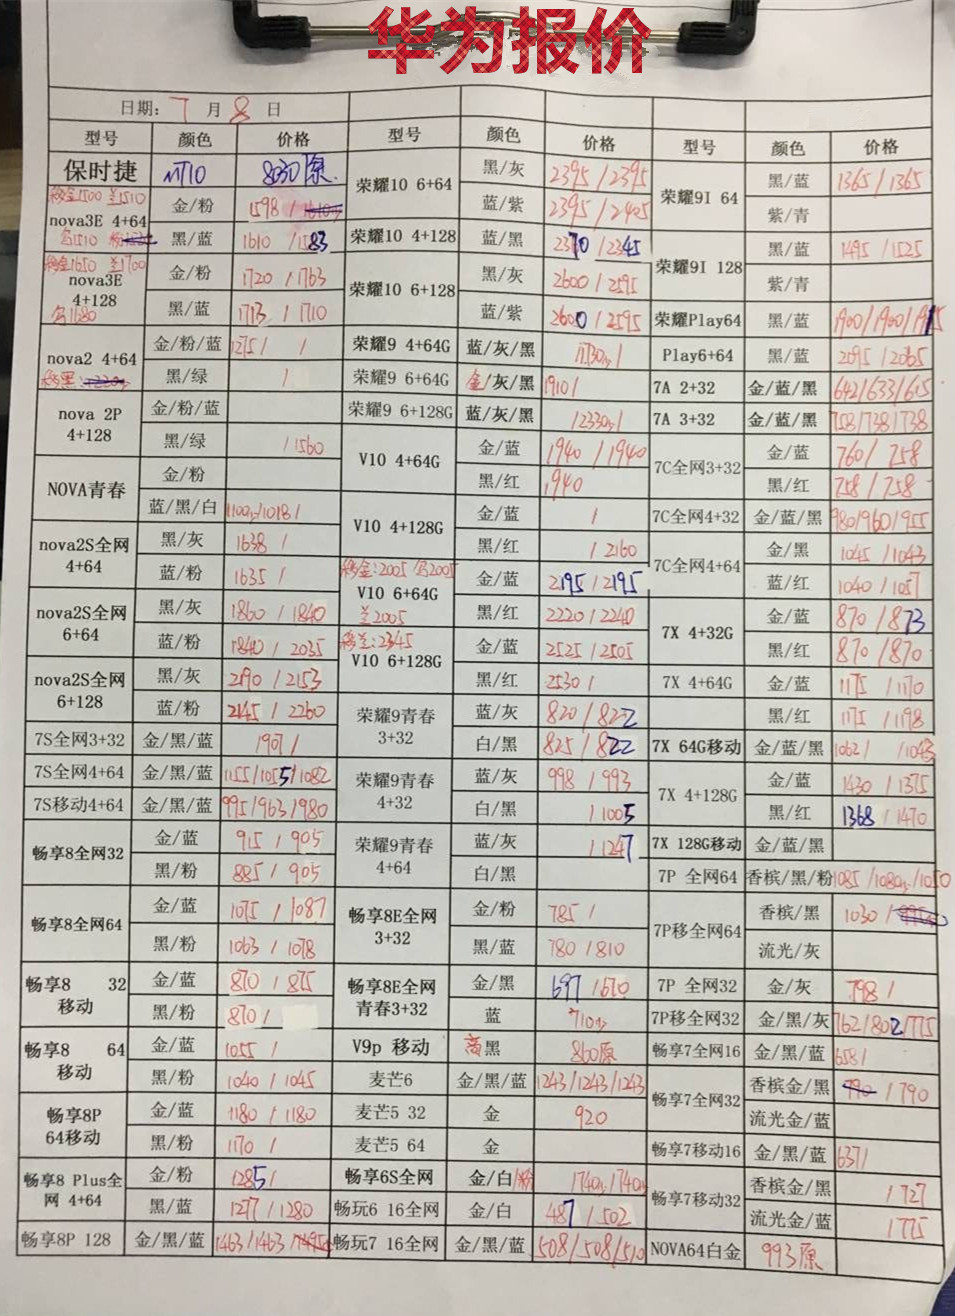 华为报价
日期: 7 月 8 日
型号 颜色 价格 型号 颜色 价格 型号 颜色 价格
保时捷 8030原
nova3E 4+64 金/粉 1598 /
黑/蓝 1610 /1583
nova3E 4+128 金/粉 1720 /1763
黑/蓝 1713 /1710
nova2 4+64 金/粉/蓝 1275/ /
黑/绿 /
nova 2P 4+128 金/粉/蓝
黑/绿 /1560
NOVA青春 金/粉
蓝/黑/白
nova2S全网 4+64 黑/灰 1638 /
蓝/粉 1635 /
nova2S全网 6+64 黑/灰 1860 / 1840
蓝/粉 1840 / 2035
nova2S全网 6+128 黑/灰 2190 / 2153
蓝/粉 2145 / 2260
7S全网3+32 金/黑/蓝 1907/
7S全网4+64 金/黑/蓝 1155/1055/1082
7S移动4+64 金/黑/蓝 995/963/980
畅享8全网32 金/蓝 915 / 905
黑/粉 885 / 905
畅享8全网64 金/蓝 1075 / 1087
黑/粉 1063 / 1078
畅享8 32 移动 金/蓝 870 / 875
黑/粉 870 /
畅享8 64 移动 金/蓝 1055 /
黑/粉 1040 / 1045
畅享8P 64移动 金/蓝 1180 / 1180
黑/粉 1170 /
畅享8 Plus全网 4+64 金/粉 1285/
黑/蓝 1277 / 1280
畅享8P 128 金/黑/蓝 1463/1463
荣耀10 6+64 黑/灰 2395 /2395
蓝/紫 2395 /2405
荣耀10 4+128 蓝/黑 2370 /2345
荣耀10 6+128 黑/灰 2600 / 2595
蓝/紫 2600 / 2595
荣耀9 4+64G 蓝/灰/黑
荣耀9 6+64G 金/灰/黑 1910/
荣耀9 6+128G 蓝/灰/黑
V10 4+64G 金/蓝 1940 / 1940
黑/红 1940
V10 4+128G 金/蓝 /
黑/红 / 2160
移金:2005
V10 6+64G 金/蓝 2195 / 2195
兰2005
黑/红 2220 / 2240
移兰:2345
V10 6+128G 金/蓝 2525 / 2505
黑/红 2530 /
荣耀9青春 3+32 蓝/灰 820 / 822
白/黑 825 / 822
荣耀9青春 4+32 蓝/灰 998 / 993
白/黑 / 1005
荣耀9青春 4+64 蓝/灰 / 1247
白/黑
畅享8E全网 3+32 金/粉 785 /
黑/蓝 780 / 810
畅享8E全网 青春3+32 金/黑 697 /670
蓝
V9p 移动 黑 860原
麦芒6 金/黑/蓝 1243/1243/1243
麦芒5 32 金 920
麦芒5 64 金
畅享6S全网 金/白/粉
畅玩6 16全网 金/白 487 / 502
畅玩7 16全网 金/黑/蓝 508/508/510
荣耀9I 64 黑/蓝 1365 /1365
紫/青
荣耀9I 128 黑/蓝 1495 /1525
紫/青
荣耀Play64 黑/蓝
Play6+64 黑/蓝 2095 / 2065
7A 2+32 金/蓝/黑 642/633/615
7A 3+32 金/蓝/黑 758/738/738
7C全网3+32 金/蓝 760/ 758
黑/红 758 / 758
7C全网4+32 金/蓝/黑 980/960/955
7C全网4+64 金/黑 1045 /1043
蓝/红 1040 / 1057
7X 4+32G 金/蓝 870 / 873
黑/红 870 / 870
7X 4+64G 金/蓝 1175 / 1170
黑/红 1175 / 1198
7X 64G移动 金/蓝/黑 1062/
7X 4+128G 金/蓝 1430 / 1375
黑/红 1368 / 1470
7X 128G移动 金/蓝/黑
7P 全网64 香槟/黑/粉
7P移全网64 香槟/黑 1030 /
流光/灰
7P 全网32 金/灰 798 /
7P移全网32 金/黑/灰 762/802/775
畅享7全网16 金/黑/蓝 658/
畅享7全网32 香槟金/黑 / 790
流光金/蓝
畅享7移动16 金/黑/蓝 637/
畅享7移动32 香槟金/黑 / 727
流光金/蓝 / 775
NOVA64白金 993原